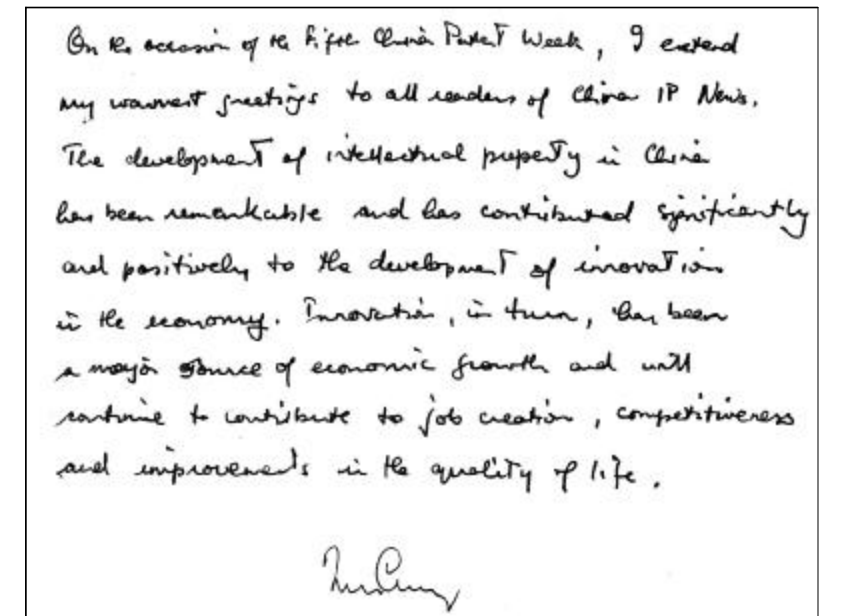 On the occasion of the Fifth China Patent Week, I extend
my warmest greetings to all readers of China IP News.
The development of intellectual property in China
has been remarkable and has contributed significantly
and positively to the development of innovation
in the economy. Innovation, in turn, has been
a major source of economic growth and will
continue to contribute to job creation, competitiveness
and improvements in the quality of life.